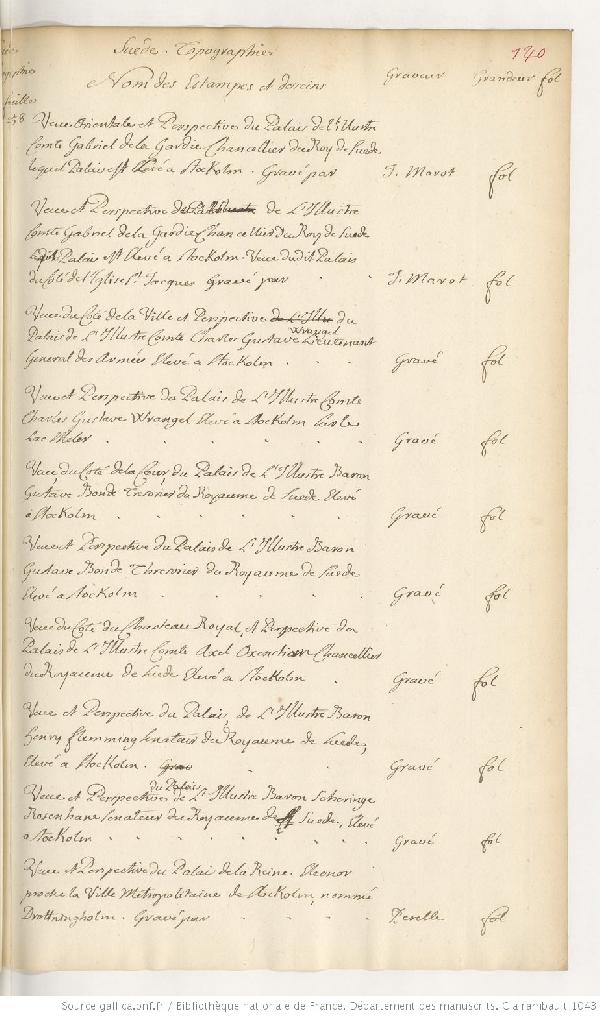 Suède. Topographie.
140
Nom des Estampes et desseins Graveur Grandeur fol
58
Veue Orientale et Perspective du Palais de l'Illustre
Comte Gabriel de la Gardie Chancellier du Roy de Suede
lequel Palais est Elevé a Stockolm. Gravé par J. Marot fol
Veue et Perspective du Palais de L'Illustre
Comte Gabriel de la Gardie Chancellier du Roy de Suede
Palais est Elevé a Stockolm. Veue dudit Palais
du Coté de l'Eglise St. Jacques Gravé par J. Marot fol
Veue du Coté de la Ville et Perspective de L'Illu du
Wrangel
Palais de L'Illustre Comte Charles Gustave Lieutenant
General des Armées Elevé a Stockolm . Gravé fol
Veue et Perspective du Palais de L'Illustre Comte
Charles Gustave Wrangel Elevé a Stockolm sur le
Lac Meler . . . . . Gravé fol
Veue du Coté de la Cour du Palais de L'Illustre Baron
Gustave Bonde Tresorier du Royaume de Suede Elevé
a Stockolm . . . . . Gravé fol
Veue et Perspective du Palais de L'Illustre Baron
Gustave Bonde Thresorier du Royaume de Suede
Elevé a Stockolm . . . . Gravé fol
Veue du Coté du Chasteau Royal, et Perspective du
Palais de L'Illustre Comte Axel Oxenstiern Chancellier
du Royaume de Suede Elevé a Stockolm . Gravé fol
Veue et Perspective du Palais, de L'Illustre Baron
Henry Flemming Senateur du Royaume de Suede,
Elevé a Stockolm. Grav . . Gravé fol
du Palais
Veue et Perspective de L'Illustre Baron Schering
Rosenhane Senateur du Royaume de Suede, Elevé
a Stockolm . . . . . Gravé fol
Veue et Perspective du Palai de la Reine Eleonor
proche la Ville Metropolitaine de Stockolm, nommé
Drottningholm. Gravé par . . . Perelle fol
Source gallica.bnf.fr / Bibliothèque nationale de France. Département des manuscrits. Clairambault 1043